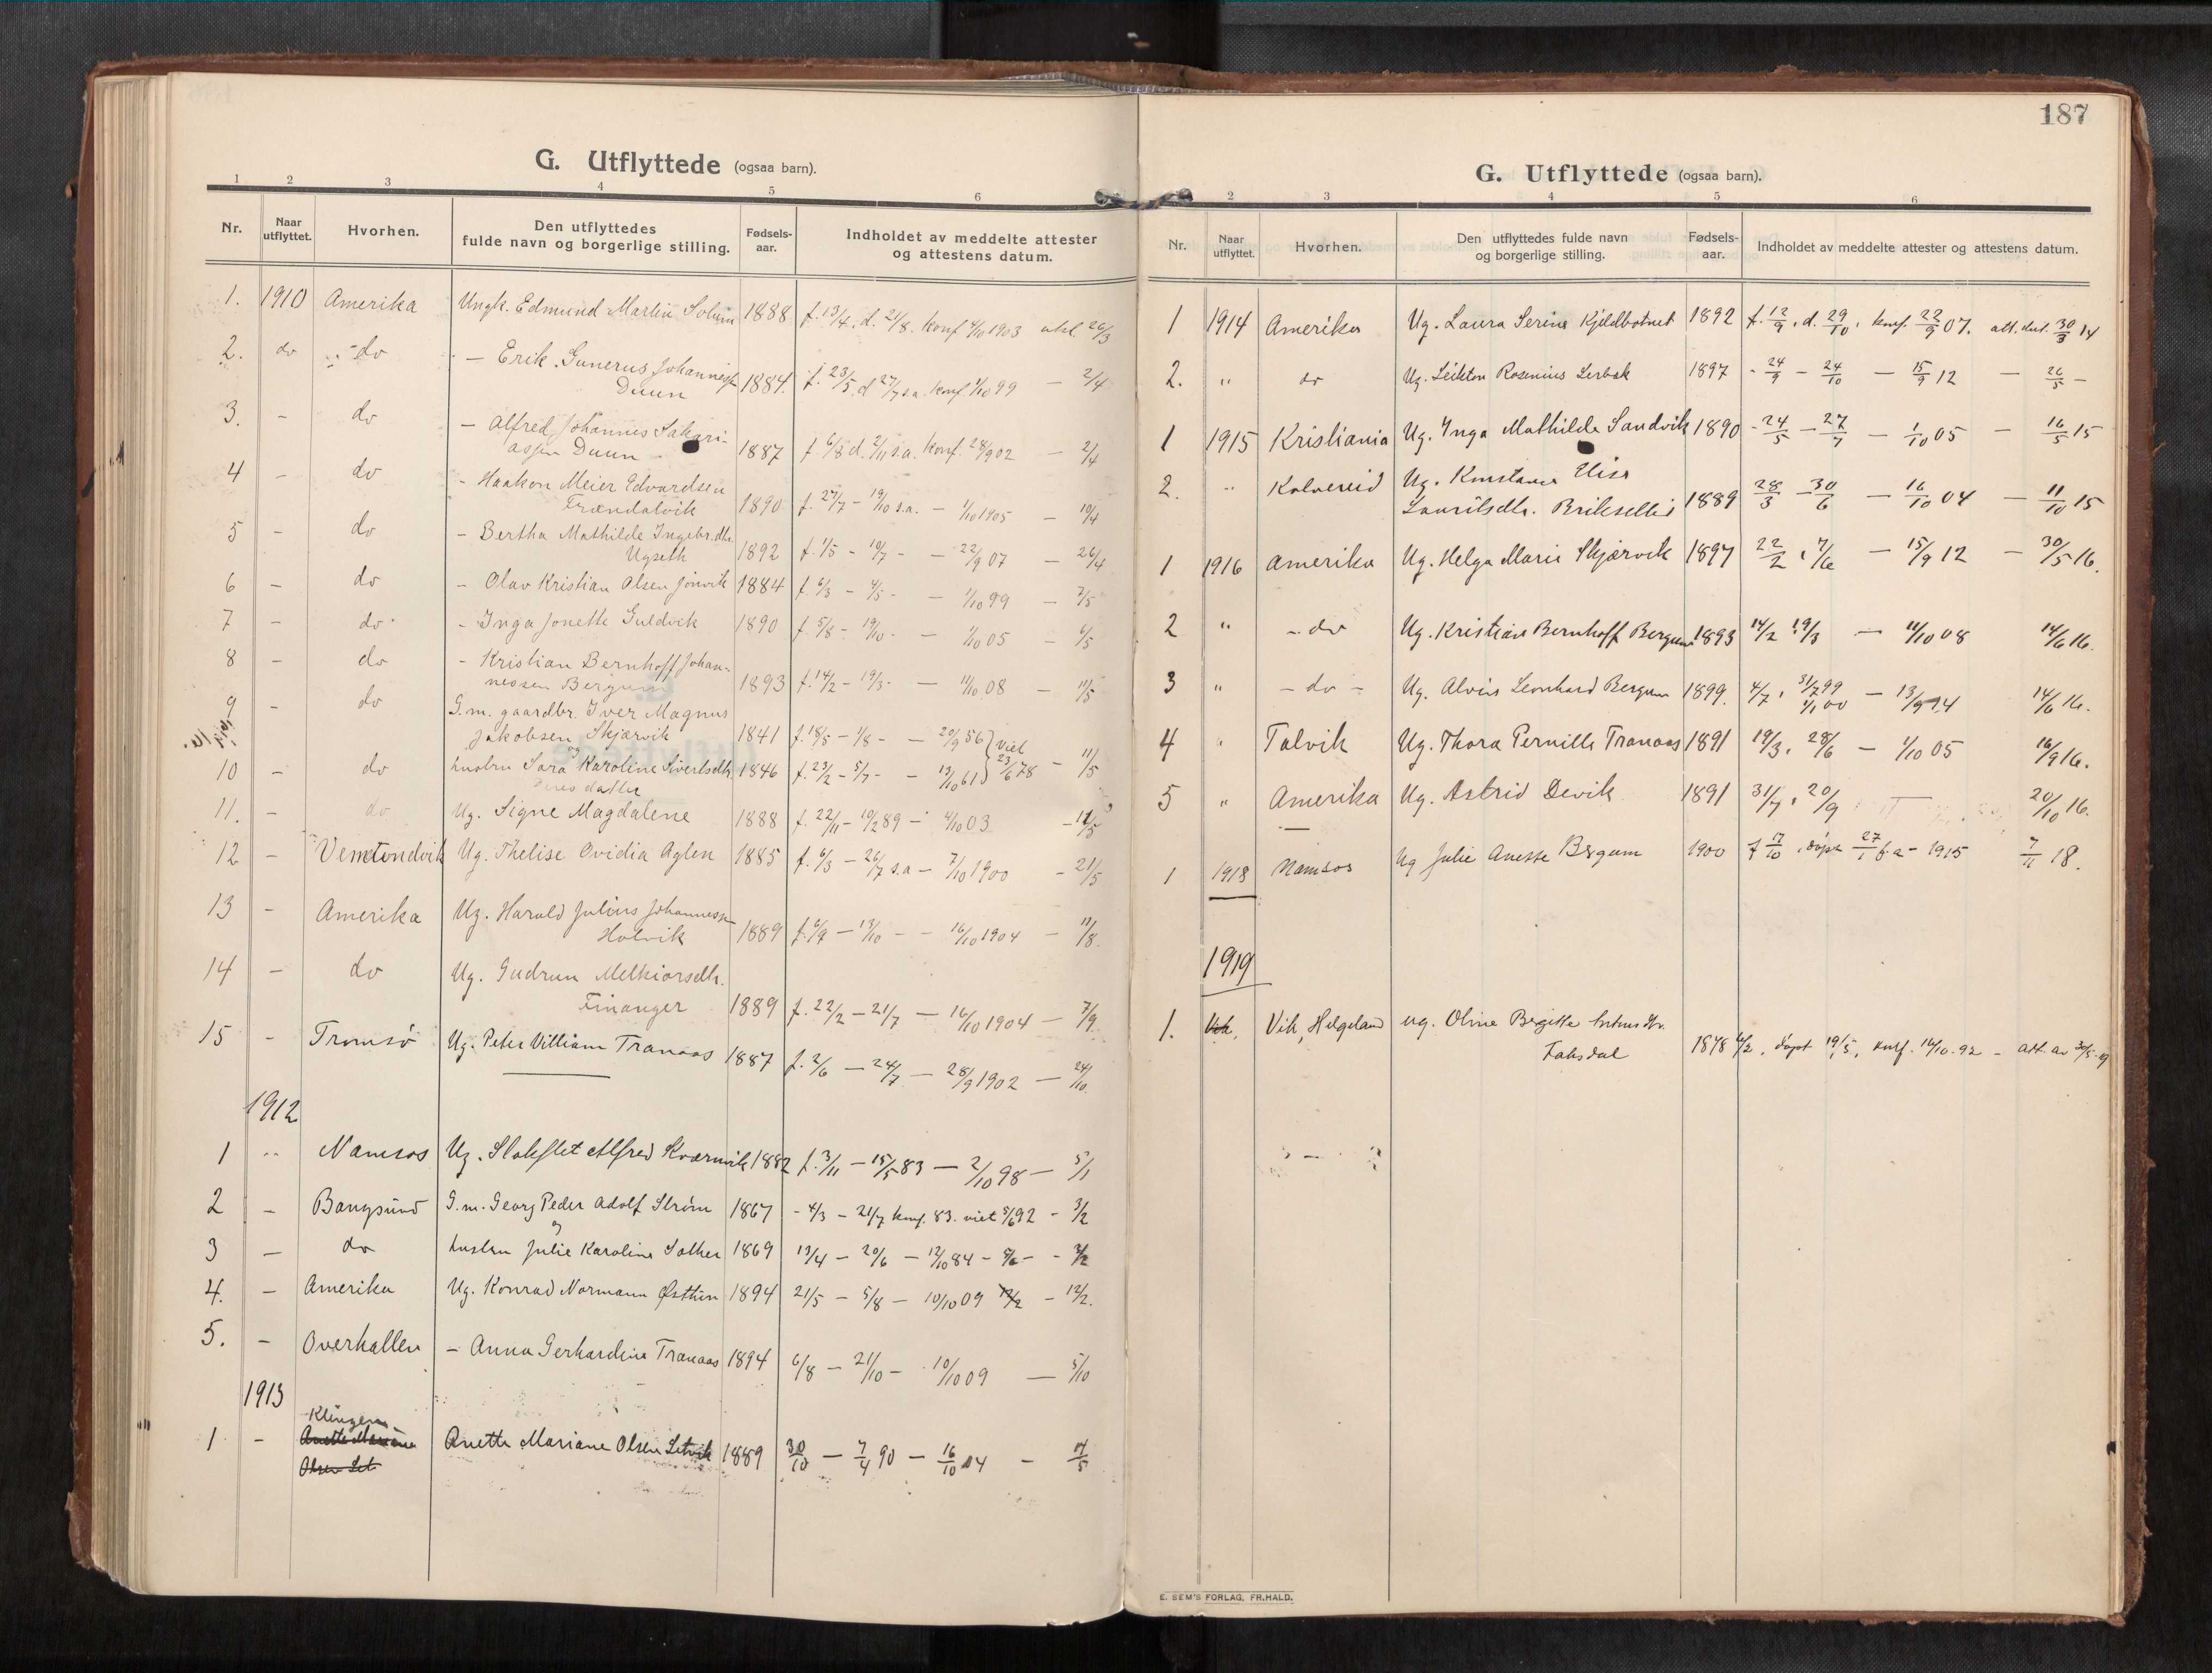 G. Utflyttede (ogsaa barn).
1 2 3 4 5 6
Nr. Naar utflyttet. Hvorhen. Den utflyttedes fulde navn og borgerlige stilling. Fødsels-aar. Indholdet av meddelte attester og attestens datum.
1. 1910 Amerika Ungk. Edmund Martin Solum 1888 f. 13/4. d. 21/8. konf 4/10 1903 26/3
2. do do – Erik Gunerus Johanness.
Duun 1884. f. 23/5 d 27/7 s.a. konf. 1/10 99 – 2/4
3. – do – Alfred Johannes Sakari-
assen Duun 1887 f. 6/8 d. 2/11 s.a. konf. 28/9 02 – 2/4
4 – do – Haakon Meier Edvardsen
Frændalvik 1890 f. 27/7 – 19/10 s.a. – 1/10 1905 – 10/4
5 – do – Bertha Mathilde Ingebr.dtr.
Ugseth 1892 f. 1/5 – 10/7 – – 22/9 07 – 26/4
6 – do – Olav Kristian Olsen Jonvik 1884 f. 6/3 – 4/5 – – 1/10 99 – 7/5
7 – do – Inga Jonette Guldvik 1890 f. 5/8 – 19/10 – – 1/10 05 – 6/5
8 – do – Kristian Bernhoff Johan-
nessen Bergum 1893 f. 14/2 – 19/3 – – 11/10 08 – 11/5
9 – do G.m. gaardbr. Iver Magnus
Jakobsen Skjærvik 1841 f. 18/5 – 1/8 – – 20/9 56 } Viet
og
10 – do hustru Sara Karoline Sivertsdtr. 1846 f. 23/2 – 5/7 – – 13/10 61 } 23/6 78 – 11/5
deres datter
11. – do Ug. Signe Magdalene 1888 f. 22/11 – 10/2 89 – 4/10 03 – 12/5
12 – Vemundvik Ug. Thelise Ovidia Aglen 1885 f. 6/3 – 26/7 s.a – 7/10 1900 – 21/5
13 – Amerika Ug. Harald Julius Johannessen
Holvik 1889 f. 6/9 – 13/10 – – 16/10 1904 – 11/8.
14 – do Ug. Gudrun Melkiorsdtr.
Finanger 1889 f. 22/2 – 21/7 – 16/10 1904 – 7/9.
15 – Tromsø Ug. Peter Villiam Tranaas 1887 f. 2/6 – 24/7 – 28/9 1902 – 24/10.
1912
1 " Namsos Ug. Alfred Kværnvik 1882 f. 3/11 – 15/5 83 – 2/10 98 – 5/1
2 – Bangsund G.m. Georg Peder Adolf Strøm 1867 – 4/3 – 21/7 konf. 83. viet 5/6 92 – 3/2
og
3 – do hustru Julie Karoline Sother 1869 13/4 – 20/6 – 12/10 84 – 5/6 – – 3/2
4. – Amerika Ug. Konrad Normann Østhin 1894 21/5 – 5/8 – 10/10 09 12/2 – 12/2.
5. – Overhallen – Anna Gerhardine Tranaas 1894 6/8 – 21/10 – 10/10 09 – 5/10
1913
Klingen
1 – Anette Mariane Anette Mariane Olsen Setvik 1889 30/10 – 7/4 90 – 16/10 04 – 14/5
Olsen Set
187
G. Utflyttede (ogsaa barn).
2 3 4 5 6
Nr. Naar utflyttet. Hvorhen. Den utflyttedes fulde navn og borgerlige stilling. Fødsels-aar. Indholdet av meddelte attester og attestens datum.
1 1914 Amerika Ug. Laura Serine Kjeldbotnet 1892 f. 12/9, d. 29/10, konf. 22/9 07. att. dat. 30/3 14
2. " do Ug. Rosenius Serbak 1897 – 24/9 – 24/10 – 15/9 12 – 26/5 –
1 1915 Kristiania Ug. Inga Mathilde Sandvik 1890 – 24/5 – 27/7 – 1/10 05 – 16/5 15
2. " Kolvereid Ug. Konstance Elise
Lauritsdtr. 1889 28/3 – 30/6 – 16/10 04 – 11/10 15
1 1916 Amerika Ug. Helga Marie Skjærvik 1897 22/2, 7/6 – 15/9 12 – 30/5 16.
2 " – do Ug. Kristian Bernhoff Bergum 1893 14/2 19/3 – 11/10 08 14/6 16.
3 " – do – Ug. Alvin Leonhard Bergum 1899. 4/7, 31/7 99 1/1 00 – 13/9 14 14/6 16.
4 " Talvik Ug. Thora Pernille Tranaas 1891 19/3, 28/6 – 1/10 05 16/9 16.
5 " Amerika Ug. Astrid Devik 1891 31/7, 20/9 – 20/10 16.
1 1918 Namsos Ug Julie Anette Bergum 1900 f 17/10, døpt 27/1 – 1915 7/11 18.
1919
1. Vik. Vik, Helgeland ug. Oline Begitte
Faksdal 1878 6/2, døpt 19/5, konf. 16/10 92 – att. av 30/5 19
E. SEM'S FORLAG, FR.HALD.